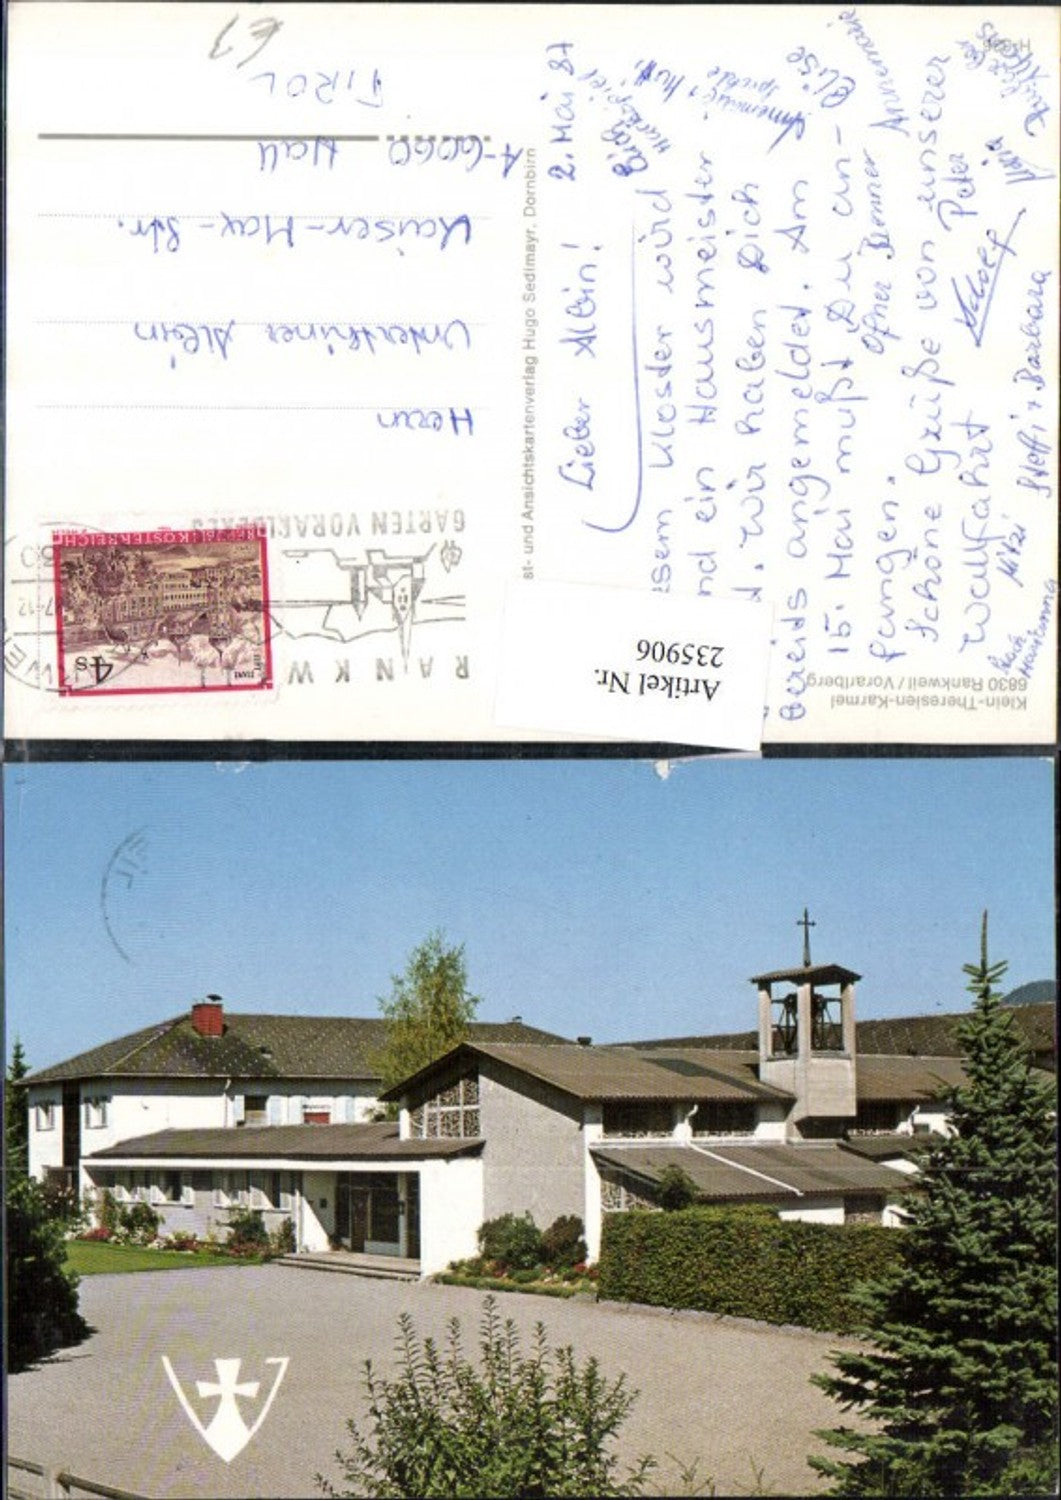 Klein-Theresien-Karmel
6830 Rankweil / Vorarlberg
st- und Ansichtskartenverlag Hugo Sedlmayr, Dornbirn
2. Mai 87
Lieber Albin!
esem Kloster wird
nd ein Hausmeister
d. Wir haben Dich
bereits angemeldet. Am
15. Mai mußt Du an-
fangen.
Schöne Grüße von unserer
Wallfahrt
Annemarie
Elise
Peter
Maria
Mitzi
Steffi + Barbara
Artikel Nr.
235906
RANKW
GARTEN VORARLBERGS
REPUBLIK ÖSTERREICH
4s
Herrn
Unterthiner Albin
Kaiser-Max-Str.
A-6060 Hall
TIROL